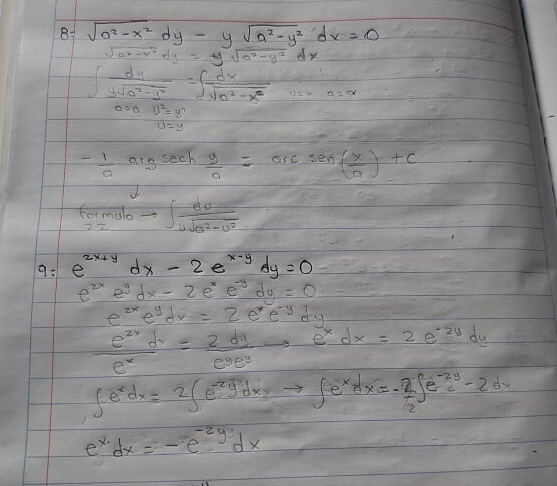 8: √(a²-x²) dy - y √(a²-y²) dx = 0
√(a²-x²) dy = y √(a²-y²) dx
∫ dy/(y√(a²-y²)) = ∫ dx/√(a²-x²) u=x a=a
a=a u²=y²
u=y
-1/a arg sech y/a = arc sen(x/a) + c
↓
formula → ∫ du/(u√(a²-u²))
22
9: e^(2x+y) dx - 2e^(x-y) dy = 0
e^(2x) e^y dx - 2e^x e^(-y) dy = 0
e^(2x) e^y dx = 2e^x e^(-y) dy
e^(2x) dx/e^x = 2 dy/(e^y e^y) → e^x dx = 2e^(-2y) dy
∫ e^x dx = 2∫ e^(-2y) dx → ∫ e^x dx = -2/2 ∫ e^(-2y) -2 dx
e^x dx = -e^(-2y) dx